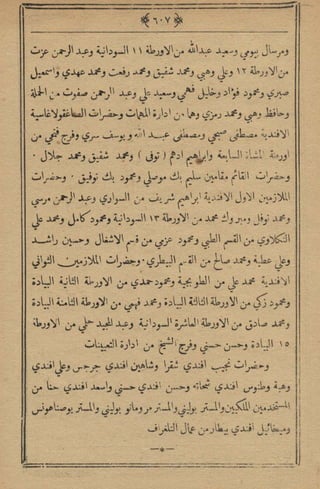 ﴿٦٠٧﴾
ومرسال بيومي وسعيد عبدالله من الاورطة ١١ السودانية وعبد الرحمن عزت
من الاورطة ١٢ وعلي وهبي ومحمد شفيق ومحمد رفعت ومحمد عهدي واسمعيل
صبري ومحمود فؤاد وخليل فهمي وسعيد علي وعبد الرحمن صفوت من الحملة
وحافظ وهبي ومحمد رمزي وهما من ادارة المهمات وحضرات الصاغقولاغاسية
الافندية مصطفى صبحي ومصطفى عبد الله ويوسف سري وفرج فتحي من
اورطة المشاة السابعة وابراهيم ادهم ( توفي ) ومحمد شفيق ومحمد جلال ٠
وحضرات القائم مقامين سليم بك موصلي ومحمود بك توفيق ٠ وحضرات
الملازمين الاول الافندية ابراهيم شريف من السواري وعبد الرحمن مرسي
ومحمد نوفل ومبروك محمد من الاورطة ١٣ السودانية ومحمود كامل ومحمد علي
التكلاوي من القسم الطبي ومحمود عزمي من قسم الاشغال وحسين راشد
وعلي عطية ومحمد صالح من القسم البيطري ٠ وحضرات الملازمين الثواني
الافندية محمد علي من الطوبجية ومحمود حمدي من الاورطة الثانية البيادة
ومحمود زكي من الاورطة الثالثة البيادة ومحمد فهمي من الاورطة الثامنة البيادة
ومحمد صادق من الاورطة العاشرة السودانية وعبد المجيد حلمي من الاورطة
١٥ البيادة وحسن حسني وفرج الشيخ من ادارة التعيينات
وحضرات نجيب افندي شقرا وشاهين افندي جرجس وعلي افندي
وهبة وطنوس افندي شحاتة وحسن افندي حسني واسعد افندي حنا من
المستخدمين الملكيين والمستر بوليني والمستر مرومانو بوليني والمستر يوصناهونس
وميخائيل افندي بيطار من عمال التلغراف